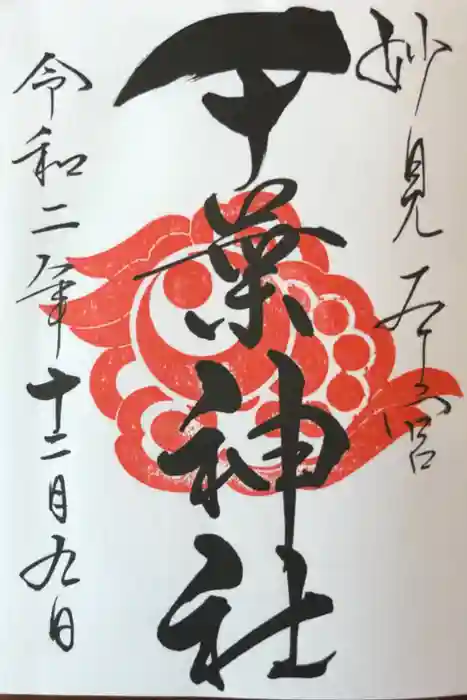 妙見本宮
千葉神社
令和二年十二月九日